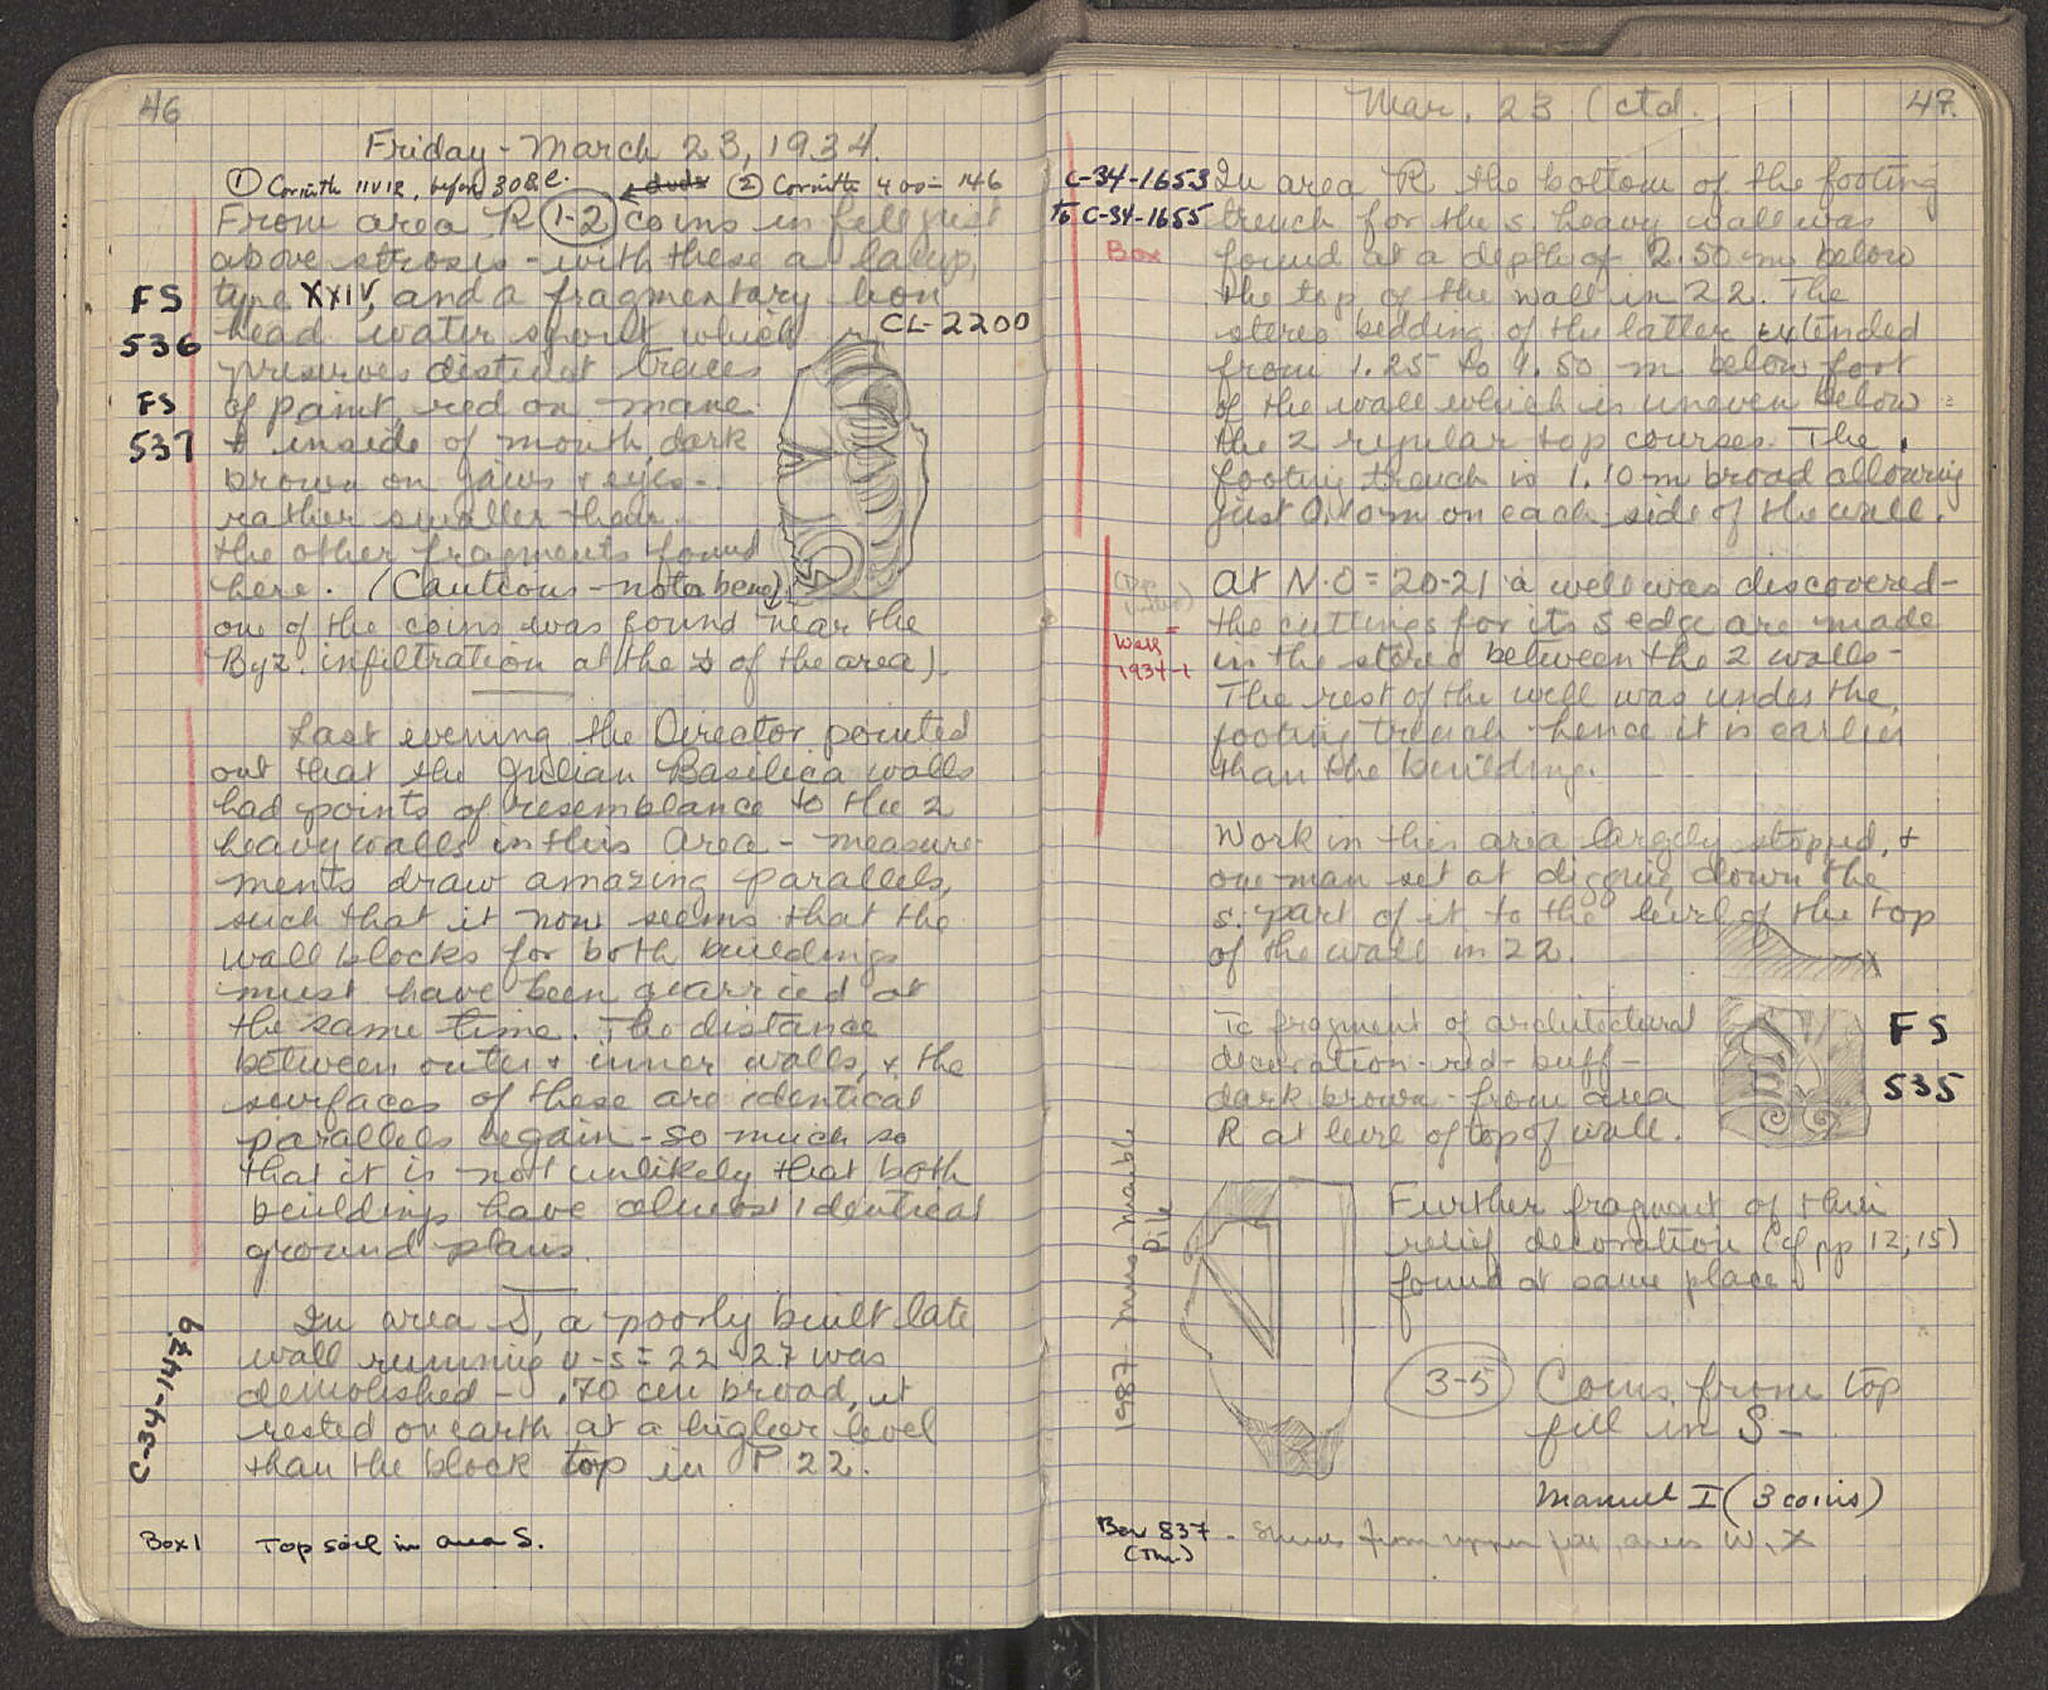 46
Friday - March 23, 1934.
① Corinth IIVIR, before 30 B.C. ② Corinth 400-146
From area R (1-2) coins in fill just
above stroses - with these a lamp,
type XXIV, and a fragmentary lion
CL-2200
head water spout which
preserves distinct traces
of paint, red on mane
+ inside of mouth, dark
brown on jaws + eyes -
rather smaller than
the other fragments found
here. (Cautious - nota bene,
one of the coins was found near the
Byz. infiltration at the s of the area).
FS
536
FS
537
Last evening the Director pointed
out that the Julian Basilica walls
had points of resemblance to the 2
heavy walls in this area - measure-
ments draw amazing parallels,
such that it now seems that the
wall blocks for both buildings
must have been quarried at
the same time. The distance
between outer + inner walls, + the
surfaces of these are identical
parallels again - so much so
that it is not unlikely that both
buildings have almost identical
ground plans.
In area S, a poorly built late
wall running v-s = 22-27 was
demolished - .70 cm broad, it
rested on earth at a higher level
than the block top in P 22.
Box 1 Top soil in area S.
Mar. 23 (ctd. 47.
C-34-1653
To C-34-1655
Box
In area R the bottom of the footing
trench for the s. heavy wall was
found at a depth of 2.50 m below
the top of the wall in 22. The
stereo bedding of the latter extended
from 1.25 to 1.50 m below foot
of the wall which is uneven below
the 2 regular top courses. The
footing trench is 1.10 m broad allowing
just 0.10 m on each side of the wall.
Well
1934-1
At N-O = 20-21 a well was discovered -
the cuttings for its s edge are made
in the stereo between the 2 walls -
The rest of the well was under the
footing trench - hence it is earlier
than the building.
Work in this area largely stopped, +
one man set at digging down the
s. part of it to the level of the top
of the wall in 22.
Tc fragment of architectural
decoration - red - buff -
dark brown - from area
R at level of top of wall.
FS
535
1987 Miss. Marble
Pile
Further fragment of thin
relief decoration (cf pp 12, 15)
found at same place.
3-5 Coins from top
fill in S -
Manuel I (3 coins)
Box 837 - Sherds from upper fill, areas W, X